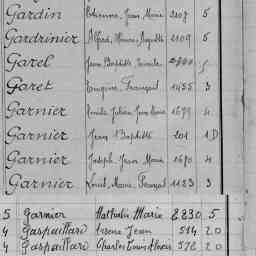 Gardin Etienne, Jean Marie 2107 5
Gardrinier Alfred, Maurice, Auguste 2109 5
Garel Jean Baptiste, 5
Garet Eugène, François 1455 3
Garnier Julien, Jean Marie 1699 4
Garnier Jean Baptiste 201 1D
Garnier Joseph Jean Marie 1670 4
Garnier Louis, Marie, François 1183 3
5 Garnier Mathurin Marie 2230 5
4 Gaspaillard Jean 514 20
4 Gaspaillard Charles Louis 572 20